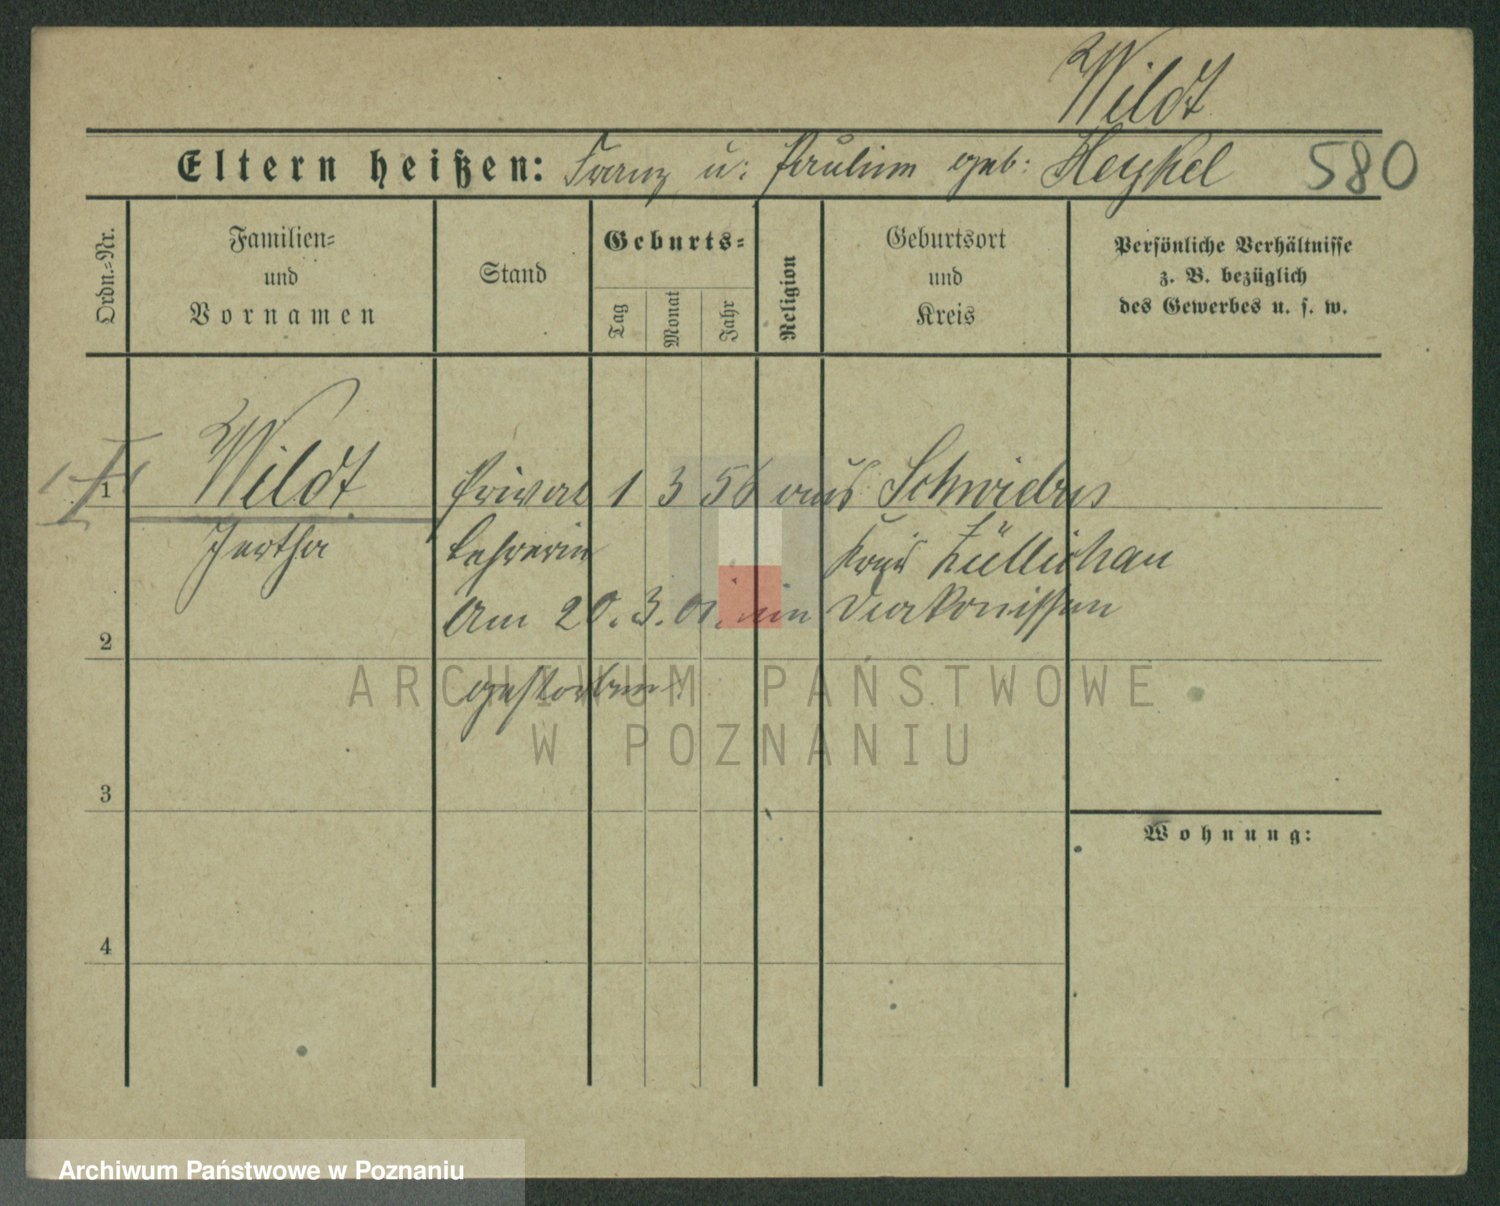 Wildt
Eltern heißen: Franz u: Pauline geb: Heykel 580
Ordn.=Nr.
Familien=
und
Vornamen
Stand
Geburts=
Tag
Monat
Jahr
Religion
Geburtsort
und
Kreis
Persönliche Verhältnisse
z. B. bezüglich
des Gewerbes u. s. w.
1 Wildt Privat 1 3 56 aus Schwiebus
Hertha Lehrerin Kreis Züllichau
2 Am 20. 3. 01. im Diakonissen
gestorben.
ARCHIWUM PAŃSTWOWE
W POZNANIU
3
Wohnung:
4
Archiwum Państwowe w Poznaniu